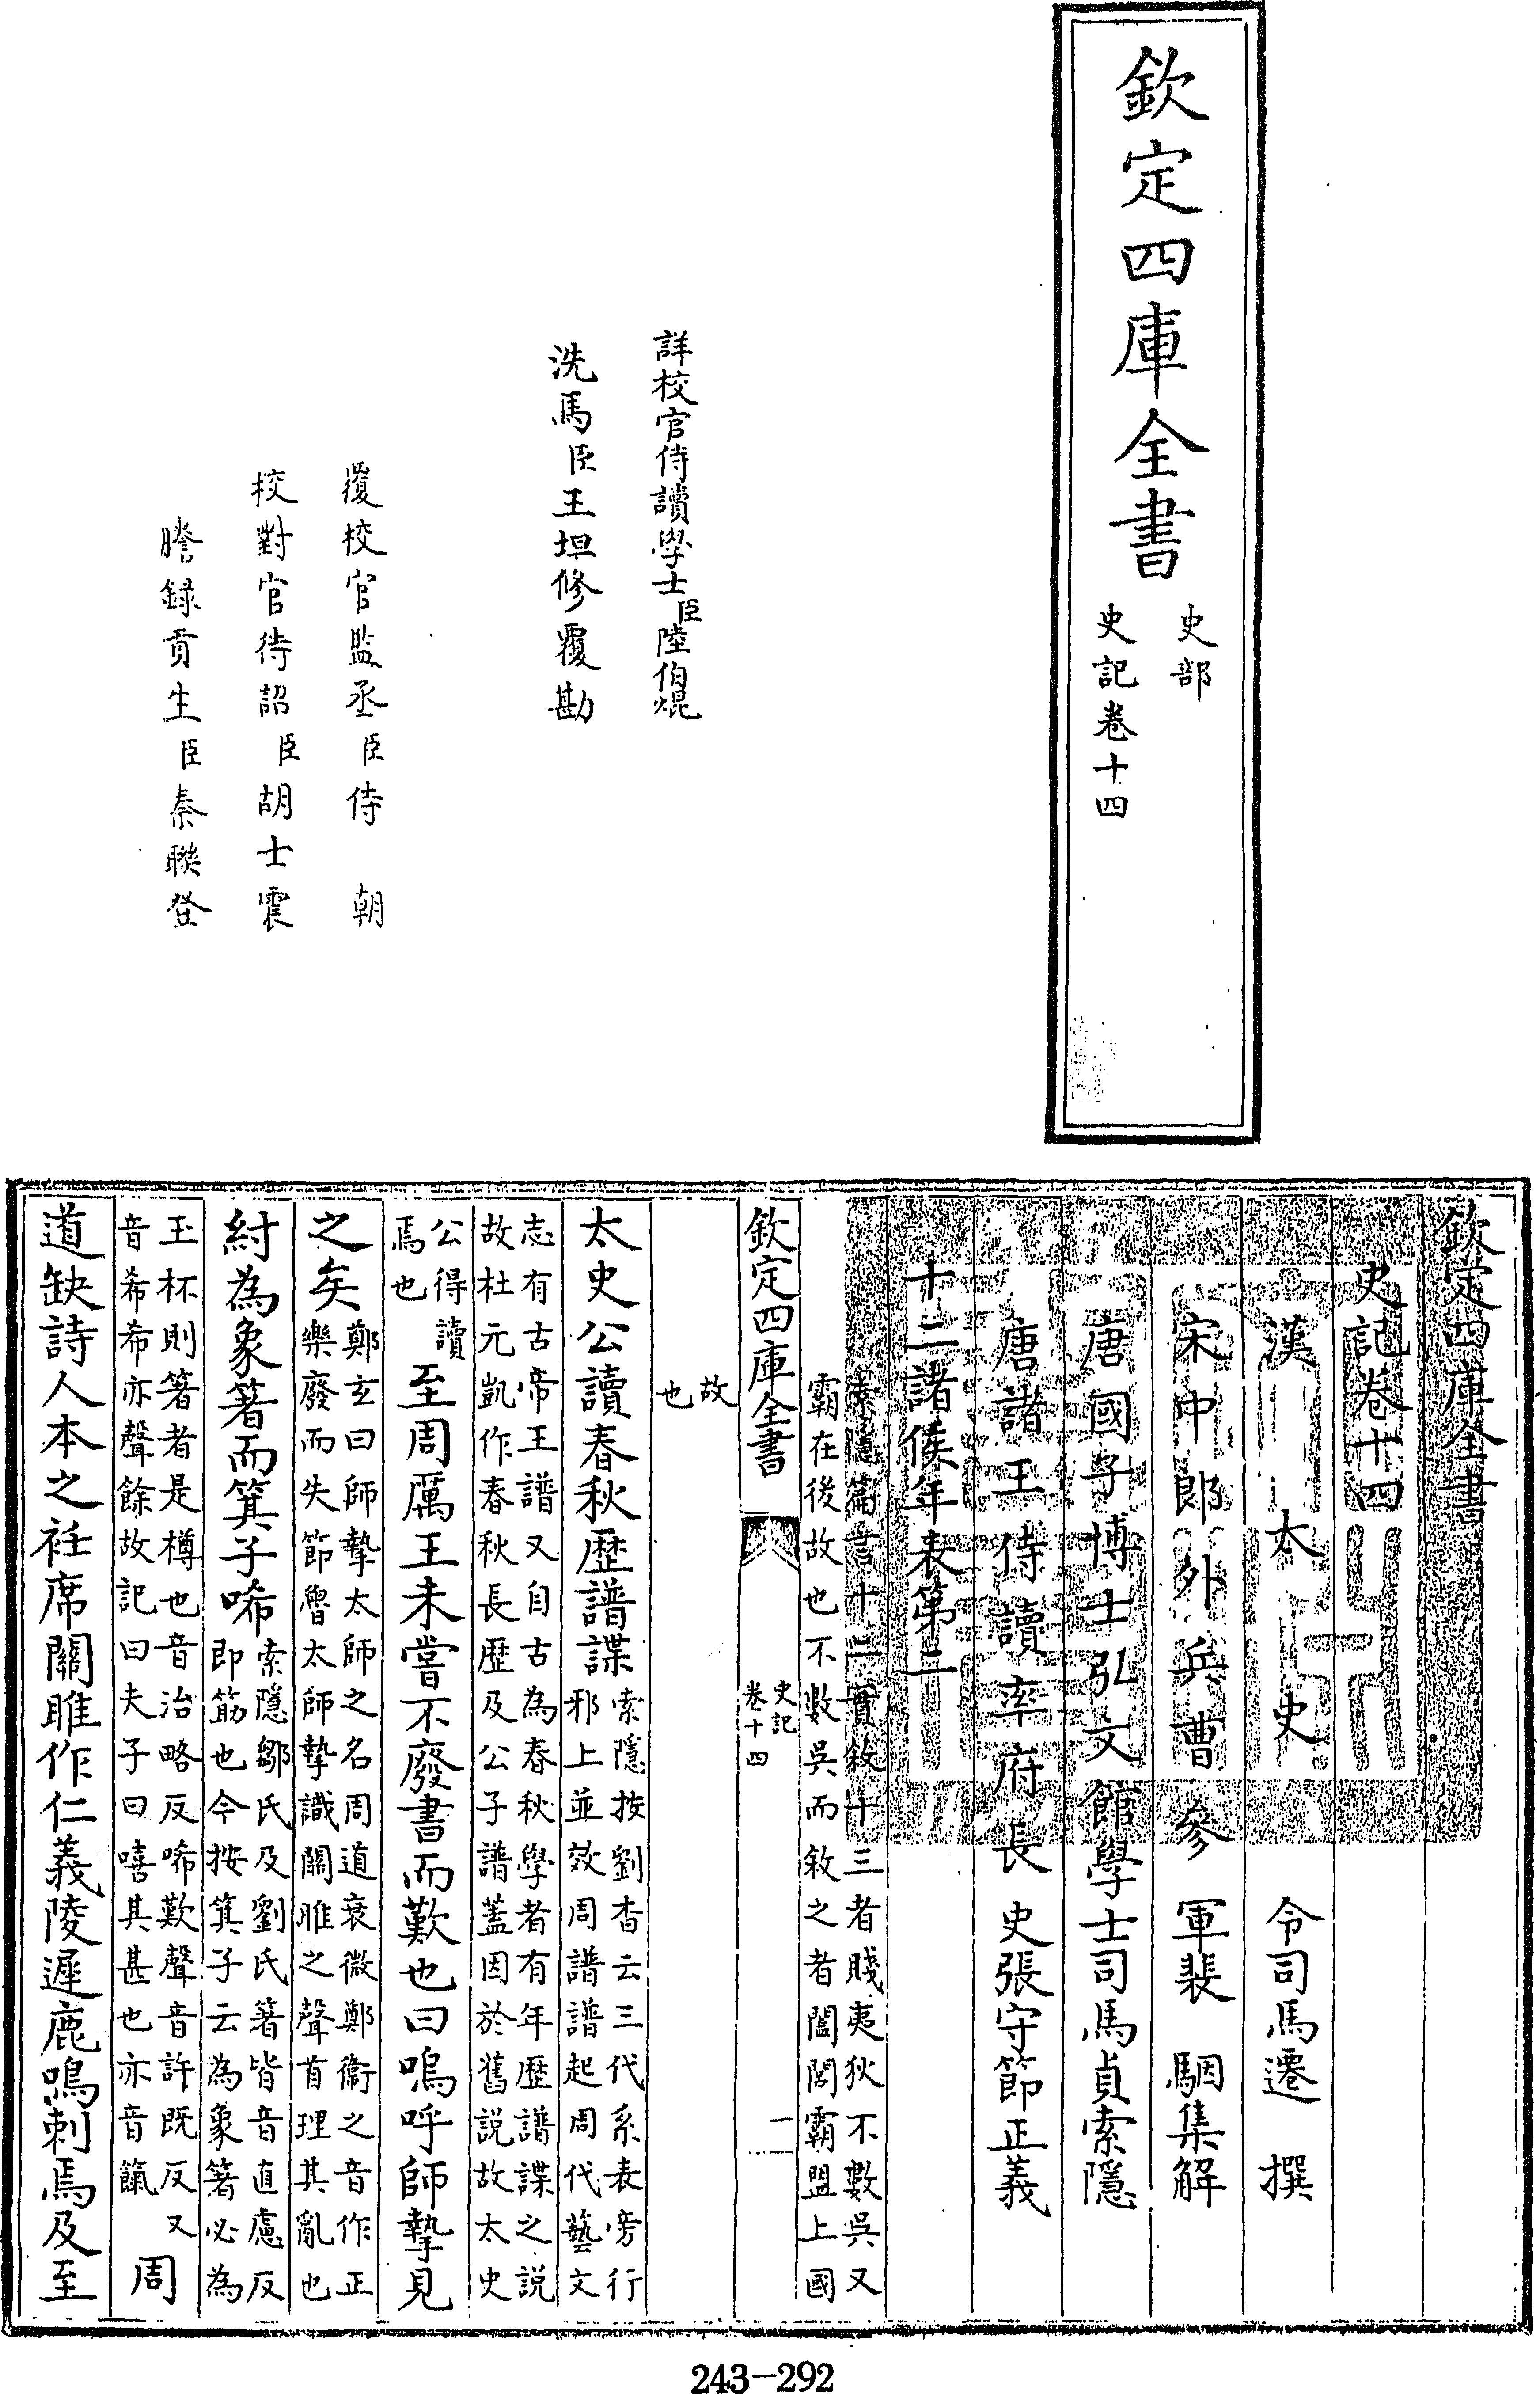 欽定四庫全書
史部
史記卷十四
詳校官侍讀學士臣陸伯焜
洗馬臣王坦修覆勘
覆校官監丞臣侍朝
校對官待詔臣胡士震
謄録貢生臣秦聯登
欽定四庫全書
史記卷十四
漢太史令司馬遷撰
宋中郎外兵曹參軍裴駰集解
唐國子博士弘文館學士司馬貞索隱
唐諸王侍讀率府長史張守節正義
十二諸侯年表第二
索隱篇言十二實敘十三者賤夷狄不數吳又
霸在後故也不數吳而敘之者闔閭霸盟上國
欽定四庫全書
史記
卷十四
一
故
也
太史公讀春秋歴譜諜
索隱按劉杳云三代系表旁行
邪上並效周譜譜起周代藝文
志有古帝王譜又自古為春秋學者有年歴譜諜之説
故杜元凱作春秋長歴及公子譜蓋因於舊説故太史
公得讀
焉也
至周厲王未嘗不廢書而歎也曰嗚呼師摯見
之矣
鄭玄曰師摯太師之名周道衰微鄭衞之音作正
樂廢而失節魯太師摯識關雎之聲首理其亂也
紂為象箸而箕子唏
索隱鄒氏及劉氏箸皆音直慮反
即筯也今按箕子云為象箸必為
玉杯則箸者是樽也音治略反唏歎聲音許既反又
音希希亦聲餘故記曰夫子曰嘻其甚也亦音餼
周
道缺詩人本之袵席關雎作仁義陵遲鹿鳴刺焉及至
243-292